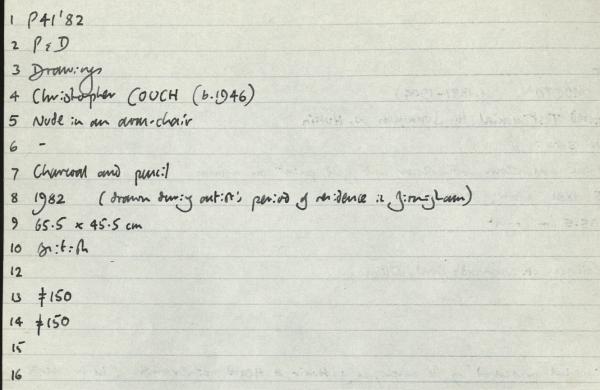 1 P41'82
2 P & D
3 Drawings
4 Christopher COUCH (b.1946)
5 Nude in an arm-chair
6 -
7 Charcoal and pencil
8 1982 (drawn during artist's period of residence in Birmingham)
9 65.5 x 45.5 cm
10 British
12
13 £150
14 £150
15
16